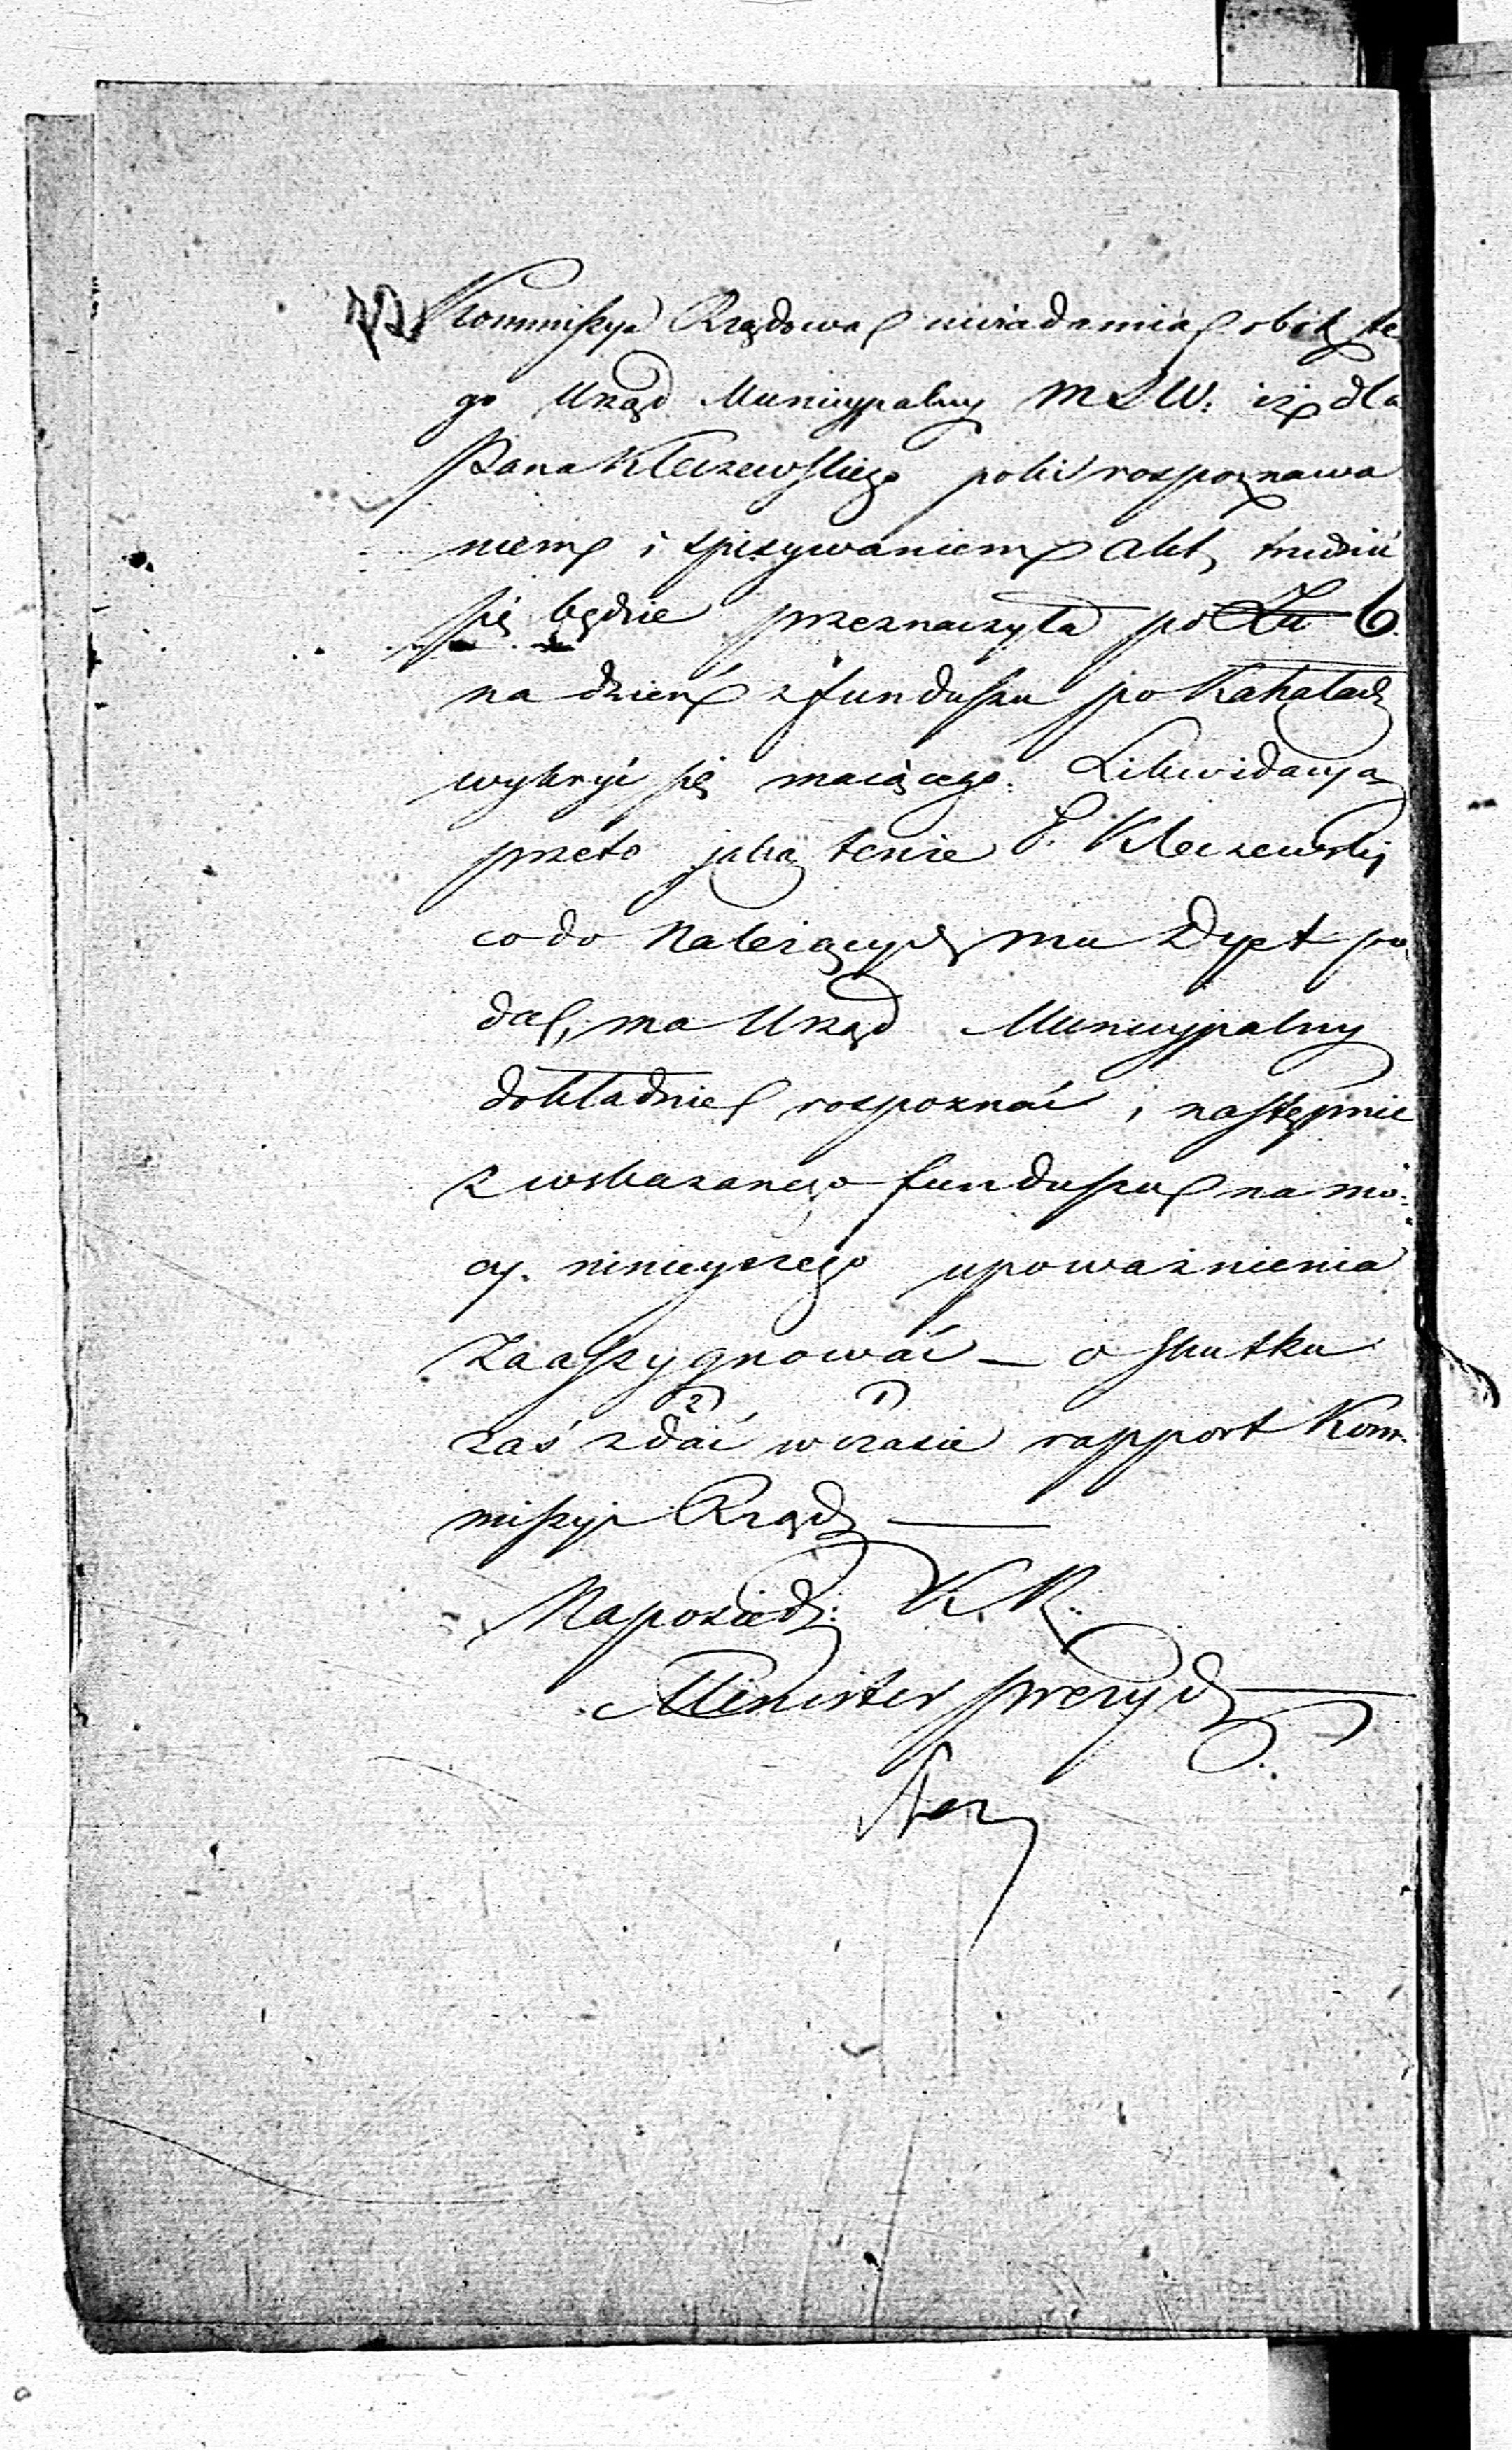 Kommissya Rządowa uwiadamia obok te
go Urząd Municypalny M S W: iż dla
Pana Kleczewskiego poki rospoznawa
niem i spisywaniem akt trudnić
się będzie przeznaczyła po Zł 6.
na dzień z funduszu po Kahałach
wykryć się maiącego. Likwidacya
przeto jaką tenże P. Kleczewski
co do należących mu Dyet po
dał, ma Urząd Municypalny
dokładnie rospoznać, następnie
z wskazanego funduszu na mo
cy. ninieyszego upoważnienia
zaassygnować — o skutku
zaś zdać w czasie rapport Kom
missyi Rząd —
Na posiedz: K. R.
Minister prezyd